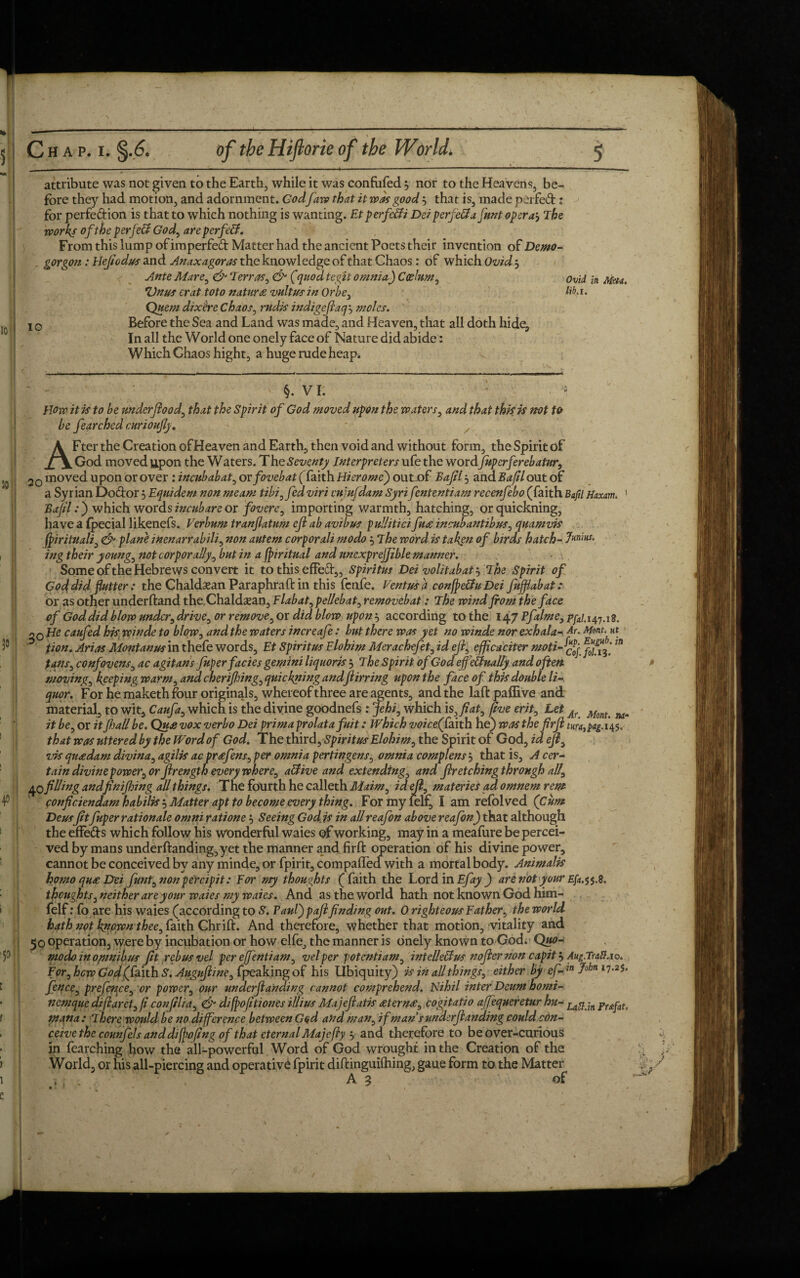 CHAP. I. §.6. of the Hiſtorie of the World. 5
attribute was not given to the Earth, while it was confuſed; nor to the Heavens, be-
fore they had motion, and adornment. God ſaw that it was good; that is, made perfect:
for perfection is that to which nothing is wanting. Et perfecti Dei perfecta ſunt opera; The
works of the perfect God, are perfect.
From this lump of imperfect Matter had the ancient Poets their invention of Demo-
gorgon: Heſiodus and Anaxagoras the knowledge of that Chaos: of which Ovid;
Ante Mare, & Terras, & (quod tegit omnia) Cœlum,
Ovid in Meta.
Unus erat toto naturæ vultus in Orbe,
lib.1.
Quem dixêre Chaos, rudis indigeſtaq; moles.
10 Before the Sea and Land was made, and Heaven, that all doth hide,
In all the World one onely face of Nature did abide:
Which Chaos hight, a huge rude heap.
§. VI.
How it is to be underſtood, that the Spirit of God moved upon the waters, and that this is not to
be ſearched curiouſly.
AFter the Creation of Heaven and Earth, then void and without form, the Spirit of
God moved upon the Waters. The Seventy Interpreters uſe the word ſuperferebatur,
20 moved upon or over: incubabat, or fovebat (ſaith Hierome) out of Baſil; and Baſil out of
a Syrian Doctor; Equidem non meam tibi, ſed viri cujuſdam Syri ſententiam recenſebo (ſaith
Baſil Hexam.
Baſil:) which words incubare or fovere, importing warmth, hatching, or quickning,
have a ſpecial likeneſs. Verbum tranſlatum eſt ab avibus pullitici ſuæ incubantibus, quamvis
ſpirituali, & planè inenarrabili, non autem corporali modo; The word is taken of birds hatch-
Junius.
ing their young, not corporally, but in a ſpiritual and unexpreſſible manner.
Some of the Hebrews convert it to this effect, Spiritus Dei volitabat; The Spirit of
God did flutter: the Chaldæan Paraphraſt in this ſenſe. Ventus à conſpectu Dei ſufflabat:
or as other underſtand the Chaldæan, Flabat, pellebat, removebat: The wind from the face
of God did blow under, drive, or remove, or did blow upon; according to the 147 Pſalme,
Pſal.147.18.
30 He cauſed his winde to blow, and the waters increaſe: but there was yet no winde nor exhala-
Ar. Mont. ut
tion. Arias Montanus in theſe words, Et Spiritus Elohim Merachefet, id eſt, efficaciter moti-
ſup. Eugub. in
tans, confovens, ac agitans ſuper facies gemini liquoris; The Spirit of God effectually and often
Coſ. fol.13.
moving, keeping warm, and cheriſhing, quickning and ſtirring upon the face of this double li-
quor. For he maketh four originals, whereof three are agents, and the laſt paſſive and
material, to wit, Cauſa, which is the divine goodneſs: Jehi, which is, fiat, ſive erit, Let
Ar. Mont. na-
it be, or it ſhall be. Quæ vox verbo Dei prima prolata fuit: Which voice (ſaith he) was the firſt
tura, pag.145.
that was uttered by the Word of God. The third, Spiritus Elohim, the Spirit of God, id eſt,
vis quædam divina, agilis ac præſens, per omnia pertingens, omnia complens; that is, A cer-
tain divine power, or ſtrength every where, active and extending, and ſtretching through all,
40 filling and finiſhing all things. The fourth he calleth Maim, id eſt, materies ad omnem rem
conficiendam habilis; Matter apt to become every thing. For my ſelf, I am reſolved (Cùm
Deus ſit ſuper rationale omni ratione; Seeing God is in all reaſon above reaſon) that although
the effects which follow his wonderful waies of working, may in a meaſure be percei-
ved by mans underſtanding, yet the manner and firſt operation of his divine power,
cannot be conceived by any minde, or ſpirit, compaſſed with a mortal body. Animalis
homo quæ Dei ſunt, non percipit: For my thoughts (ſaith the Lord in Eſay) are not your
Eſa.55.8.
thoughts, neither are your waies my waies. And as the world hath not known God him-
ſelf: ſo are his waies (according to S. Paul) paſt finding out. O righteous Father, the world
hath not known thee, ſaith Chriſt. And therefore, whether that motion, vitality and
50 operation, were by incubation or how elſe, the manner is onely known to God. Quo-
modo in omnibus ſit rebus vel per eſſentiam, vel per potentiam, intellectus noſter non capit;
Aug.Tract.10.
For, how God (ſaith S. Auguſtine, ſpeaking of his Ubiquity) is in all things, either by eſ-
in John 17.25.
ſence, preſence, or power, our underſtanding cannot comprehend. Nihil inter Deum homi-
nemque diſtaret, ſi conſilia, & diſpoſitiones illius Majeſtatis æternæ, cogitatio aſſequeretur hu-
Lact.in Præfat.
mana: There would be no difference between God and man, if man's underſtanding could con-
ceive the counſels and diſpoſing of that eternal Majeſty; and therefore to be over-curious
in ſearching how the all-powerful Word of God wrought in the Creation of the
World, or his all-piercing and operative ſpirit diſtinguiſhing, gave form to the Matter
A 3 of